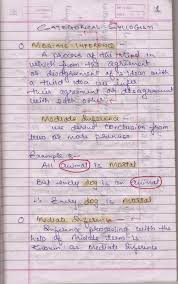 1
CATEGORICAL SYLLOGISM
MEDIATE INFERENCE
A process of the mind in
which from the agreement
or disagreement of 2 ideas with
a third idea we infer
their agreement or disagreement
with each other
Mediate Inference
we derive conclusion from
two or more premises
Example :-
All animal is mortal
But every dog is an animal
∴ Every dog is mortal
Mediate Inference :-
Inference proceeding with the
help of middle term is
known as mediate inference